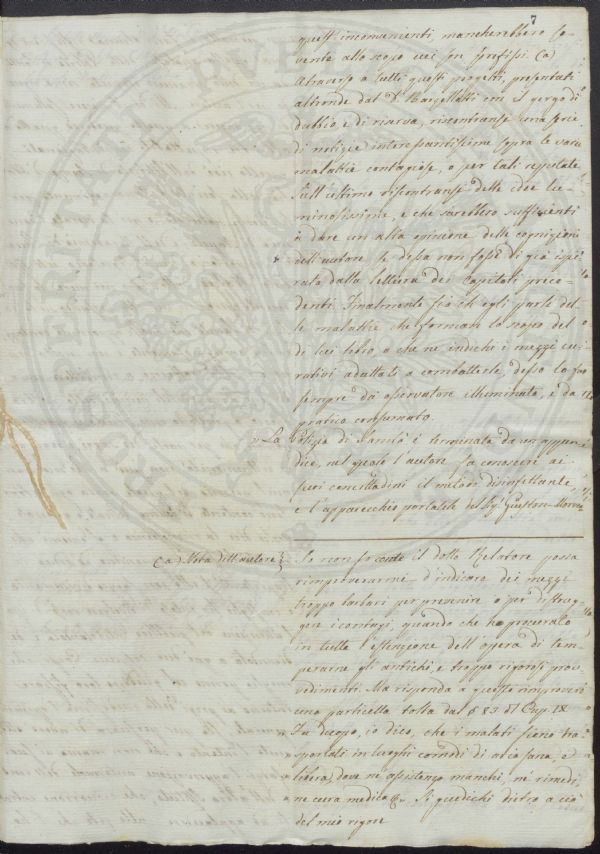 7
questi inconvenienti mancherebbero so-
vente allo scopo cui son prefissi (a)
Atraverso a tutti questi progetti, presentati
altronde dal D. Barzellotti con il gergo di
dubbio, e di riserva, riscontransi una serie
di notizie interessantissime sopra le varie
malattie contagiose, o per tali reputate
Sull'ultime riscontransi delle idee lu-
minosissime, e che sarebbero sufficienti
a dare un alta opinione delle cognizioni
dell'autore se dessa non fosse di già ispi-
rata dalla lettura dei Capitoli prece-
denti. Finalmente sia ch'egli parli del-
le malattie che formano lo scopo del
di lui libro, o che ne indichi i mezzi cu-
rativi adattati a combatterle, desso lo fa
sempre da osservatore illuminato, e da
pratico consumato.
La Polizia di Sanità è terminata da un appen-
dice, nel quale l'autore fa conoscere ai
suoi concittadini il metodo disinfettante,
e l'apparecchio portatile del Sig. Guyton-Morveau
(a) Nota dell'autore
Io non so come il dotto Relatore possa
rimproverarmi d'indicare dei mezzi
troppo barbari per prevenire o per distrug-
gere i contagi, quando che ho procurato
in tutta l'estenzione dell'opera di tem-
perarne gli antichi, e troppo rigorosi prov-
vedimenti. Ma risponda a questo rimprovero
una particella tolta dal § 83 del Cap. IX
Fa d'uopo, io dico, che i malati sieno tra-
sportati in luoghi comodi di aria sana, e
libera, dove nè assistenza manchi, nè rimedi,
nè cura medica. Si giudichi dietro a ciò
del mio rigore